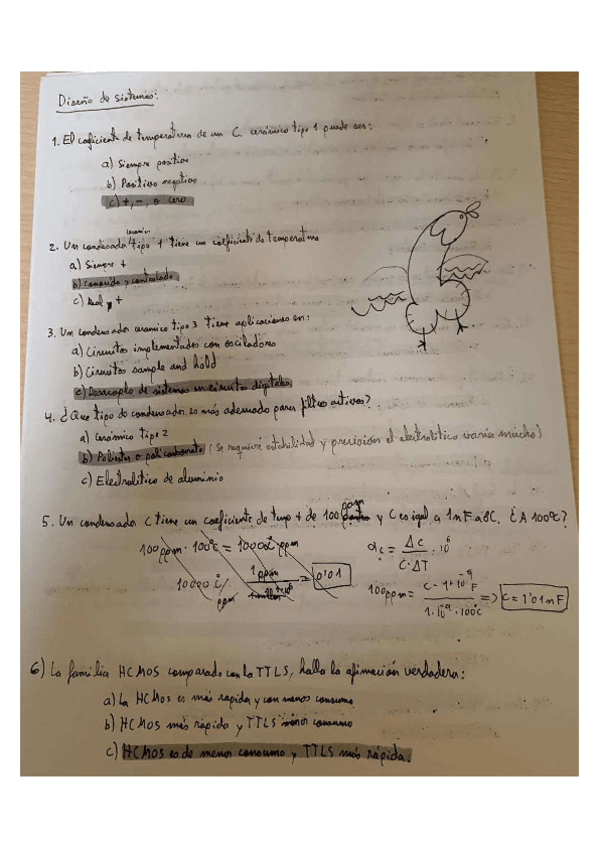 Diseño de sistemas:
1. El coeficiente de temperatura de un C cerámico tipo 1 puede ser:
a) Siempre positivo
b) Positivo negativo
c) +, -, o cero
cerámico
2. Un condensador tipo 1 tiene un coeficiente de temperatura
a) Siempre +
b) Conocido y controlado
c) Real y +
3. Un condensador ceramico tipo 3 tiene aplicaciones en:
a) Circuitos implementados con osciladores
b) Circuitos sample and hold
c) Desacoplo de sistemas en circuitos digitales
4. ¿Que tipo de condensador es más adecuado para filtros activos?
a) Cerámico tipo 2
b) Poliester o policarbonato (Se requiere estabilidad y precisión el electrolítico varía mucho)
c) Electrolítico de aluminio
ppm
5. Un condensador C tiene un coeficiente de temp + de 100 y C es igual a 1nF a 0C. ¿A 100ºC?
100 ppm · 100ºC = 10000 ppm
10000 / ppm 1 ppm = 0'01
αc = ΔC / C·ΔT · 10⁶
100ppm = C - 1·10⁻⁹F / 1·10⁻⁹·100ºC => C = 1'01nF
6) La familia HCMOS comparado con la TTLS, halla la afimación verdadera:
a) La HCMOS es más rapida y con menos consumo
b) HCMOS más rápida y TTLS menor consumo
c) HCMOS es de menor consumo y TTLS más rápida.